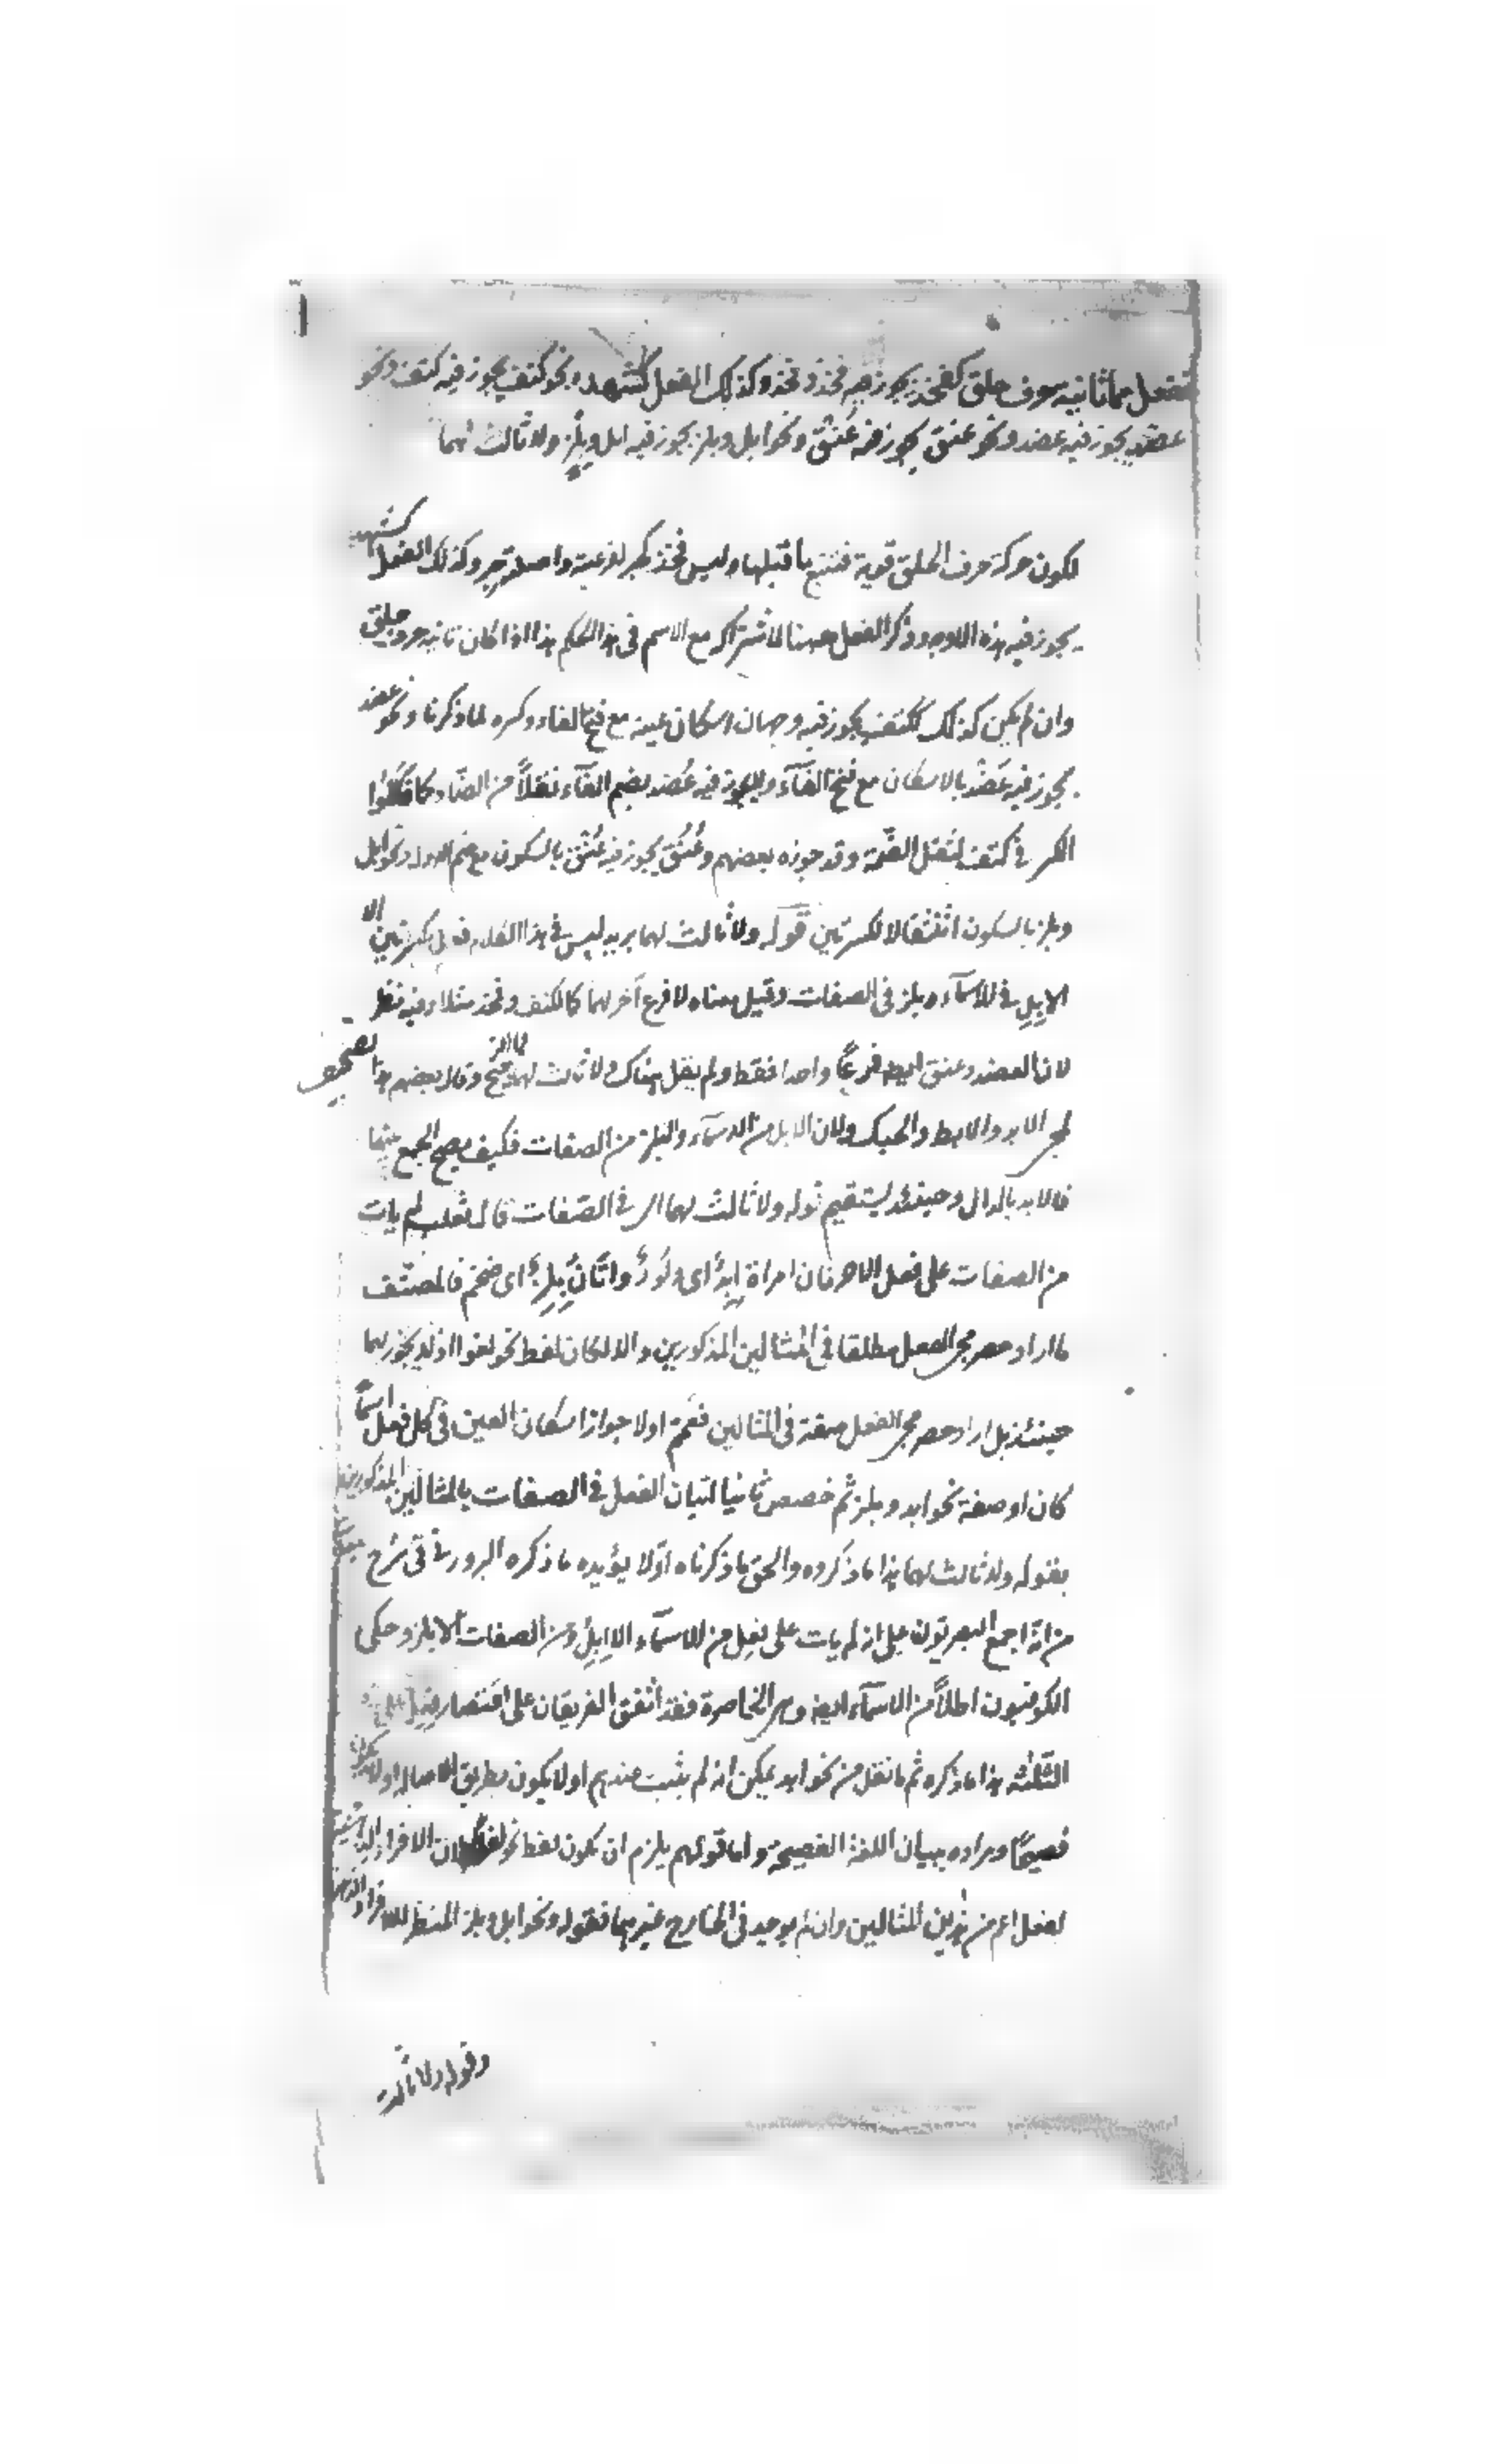 ففعل مما ثانيه حرف حلق كفخذ يجوز فيه فخذ وفخذ وكذلك الفعل كشهد ونحو كتف يجوز فيه كتف ونحو
عضد يجوز فيه عضد ونحو عنق يجوز فيه عُنْق ونحو ابل وبلز يجوز فيه ابل وبلز ولا ثالث لهما
لكون حركة حرف الحلق قوية فتتبع ما قبلها وليس فخذ كحبر لفرعيته واصلة حبر وكذلك الفعل كشهد
يجوز فيه هذه الاوجه وذكر الفعل ههنا لاشتراكه مع الاسم فى هذا الحكم هذا اذا كان ثانيه حرف حلق
وان لم يكن كذلك ككتف يجوز فيه وجهان اسكان عينه مع فتح الفاء وكسره لما ذكرنا ونحو عضد
يجوز فيه عَضْد بالاسكان مع فتح الفآء ولا يجوز فيه عُضد بضم الفآء نقلاً من الضاد كما نقلوا
الكسر فى كتف لثقل الضمة وقد جوزه بعضهم وعُنُق يجوز فيه عُنْق بالسكون مع ضم الاول ونحو ابل
وبلز بالسكون استثقالا لكسرتين قوله ولا ثالث لهما يريد ليس فى هذا الكلام فعل بكسرتين الا
الابِل فى الاسمآء وبلز فى الصفات وقيل معناه لا فرع آخر لهما كالكتف وفخذ مثلا وفيه نظر
لان لعضد وعنق ايضا فرعًا واحدا فقط ولم يقل هناك ولا ثالث لهما وقال بعضهم
لمجئ الابد والابط والحبك ولان الابل من الاسمآء والبلز من الصفات فكيف يصح الجمع بينهما
فالابد بالدال وحينئذ يستقيم قوله ولا ثالث لهما اى فى الصّفات قال ثعلب لم يات
من الصفات على فعل الا حرفان امراة اِبِدٌ اى ولود واتان بِلِزٌ اى ضخم فالمصنّف
ما اراد حصر مجئ الفعل مطلقا فى المثالين المذكورين والا لكان لفظ نحو لغوا اذ لا نحو لهما
حينئذ بل اراد حصر مجئ الفعل صفة فى المثالين فعمّم اولا جواز اسكان العين فى كل فعل اسمًا
كان او صفة نحو ابد وبلز ثم خصص ثانيا اتيان الفعل فى الصفات بالمثالين المذكورين
بقوله ولا ثالث لهما هذا ما ذكروه والحق ما ذكرناه اوّلا يؤيده ما ذكره فى شرح
من انه اجمع البصريون على انه لم يات على فعِل من الاسمآء الا اِبِل ومن الصفات الا بلز وحكى
الكوفيون اطلاً من الاسمآء ايضا وهى الخاصرة فقد اتفق الفريقان على اقتصار فعل على هذه
الثلثة هذا ما ذكره ثم ما نقل من نحو ابد يمكن انه لم يثبت عندهم او لا يكون بطريق الاصالة او لا يكون
فصيحًا ومراده بيان اللغة الفصيحة واما قولهم يلزم ان يكون لفظ نحو لغوا لان الافراد
لفعل اعم من هذين المثالين وان لم يوجد فى الخارج غيرهما فقوله ونحو ابل وبلز المنظر للافراد
وقوله ولا ثالث